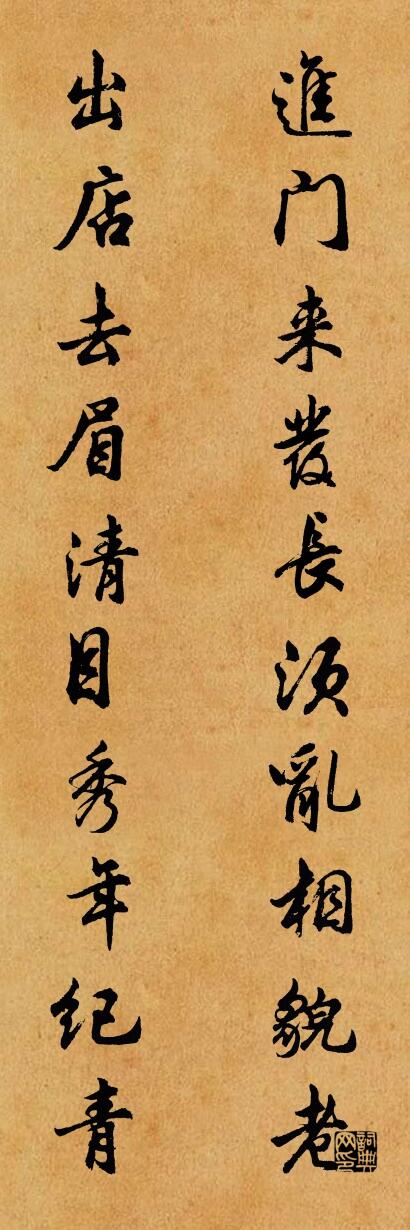 進門来發長須亂相貌老
出店去眉清目秀年纪青
詞典网印